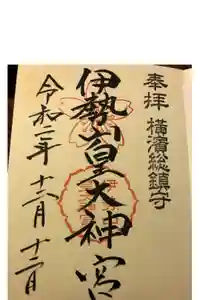 奉拝 横濱総鎮守
伊勢山皇大神宮
令和二年 十一月 十二日